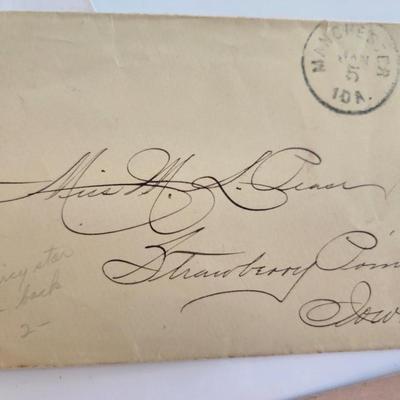 MANCHESTER
JAN
5
IOA.
Miss M. L. Pease
Strawberry Poin
Iow
star
back
2-